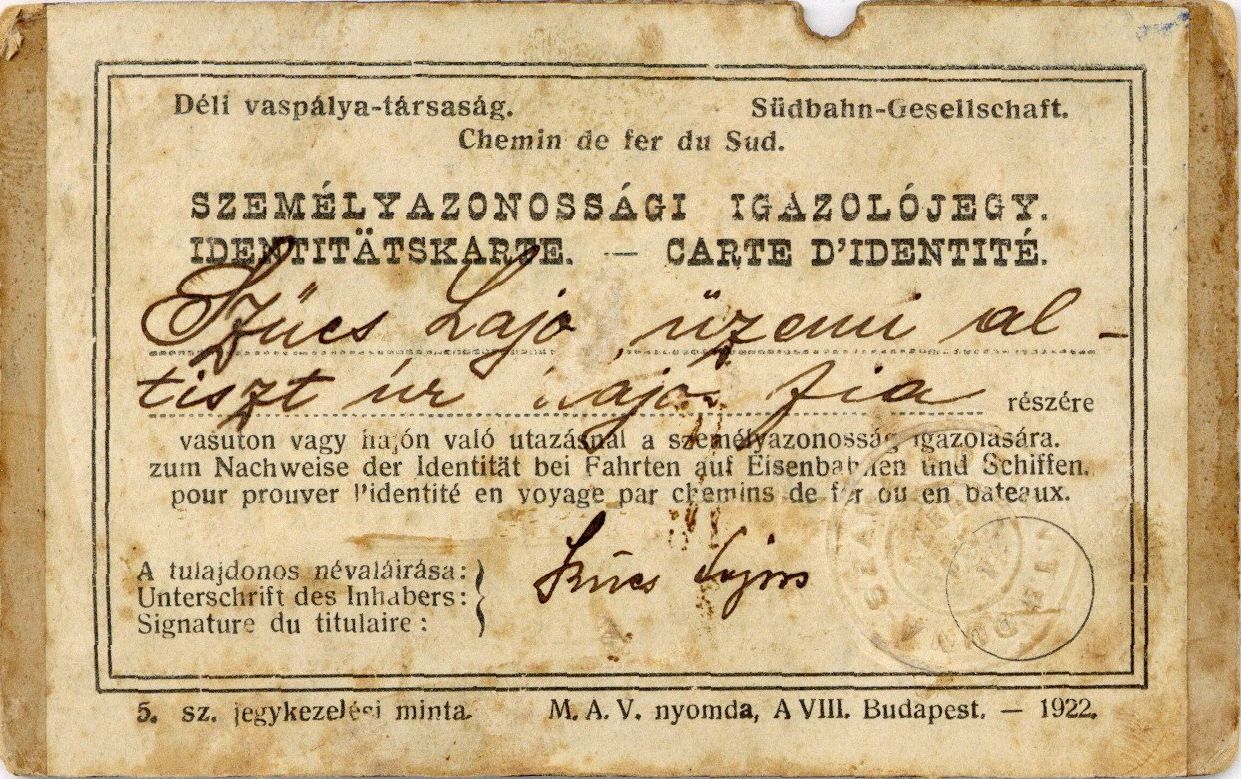 Déli vaspálya-társaság. Südbahn-Gesellschaft.
Chemin de fer du Sud.
SZEMÉLYAZONOSSÁGI IGAZOLÓJEGY.
IDENTITÄTSKARTE. — CARTE D'IDENTITÉ.
Szücs Lajo , üzemi al-
tiszt úr Lajos fia részére
vasuton vagy hajón való utazásnál a személyazonosság igazolására.
zum Nachweise der Identität bei Fahrten auf Eisenbahnen und Schiffen.
pour prouver l'identité en voyage par chemins de fer ou en bateaux.
A tulajdonos névaláirása:
Szücs Lajos
Unterschrift des Inhabers:
Signature du titulaire :
5. sz. jegykezelési minta. M. A. V. nyomda, A VIII. Budapest. — 1922.